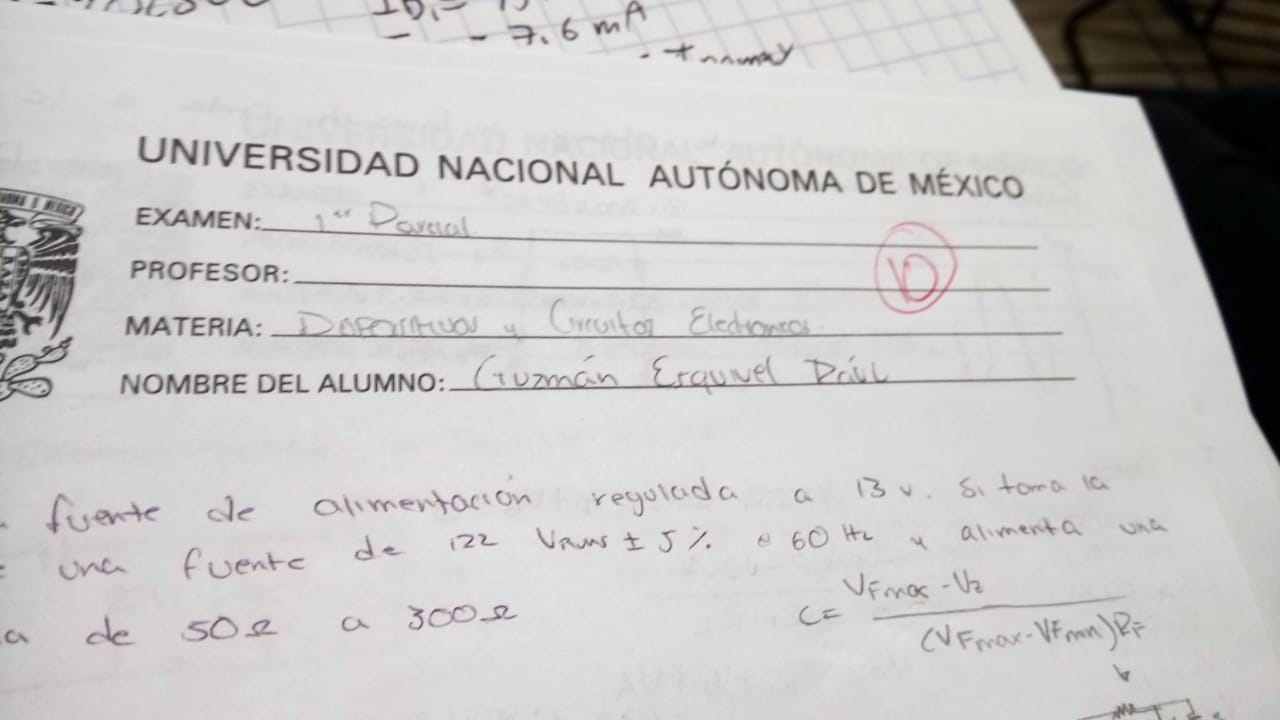 - 7.6 mA
UNIVERSIDAD NACIONAL AUTÓNOMA DE MÉXICO
EXAMEN: 1er Parcial
10
PROFESOR:
MATERIA: Dispositivos y Circuitos Electronicos
NOMBRE DEL ALUMNO: Guzmán Esquivel
fuente de alimentación regulada a 13 v. Si toma la
una fuente de 122 VRMS ± 5 % @ 60 Hz y alimenta una
a de 50Ω a 300Ω
C= VFmax - Vz
(VFmax - VFmin) RF